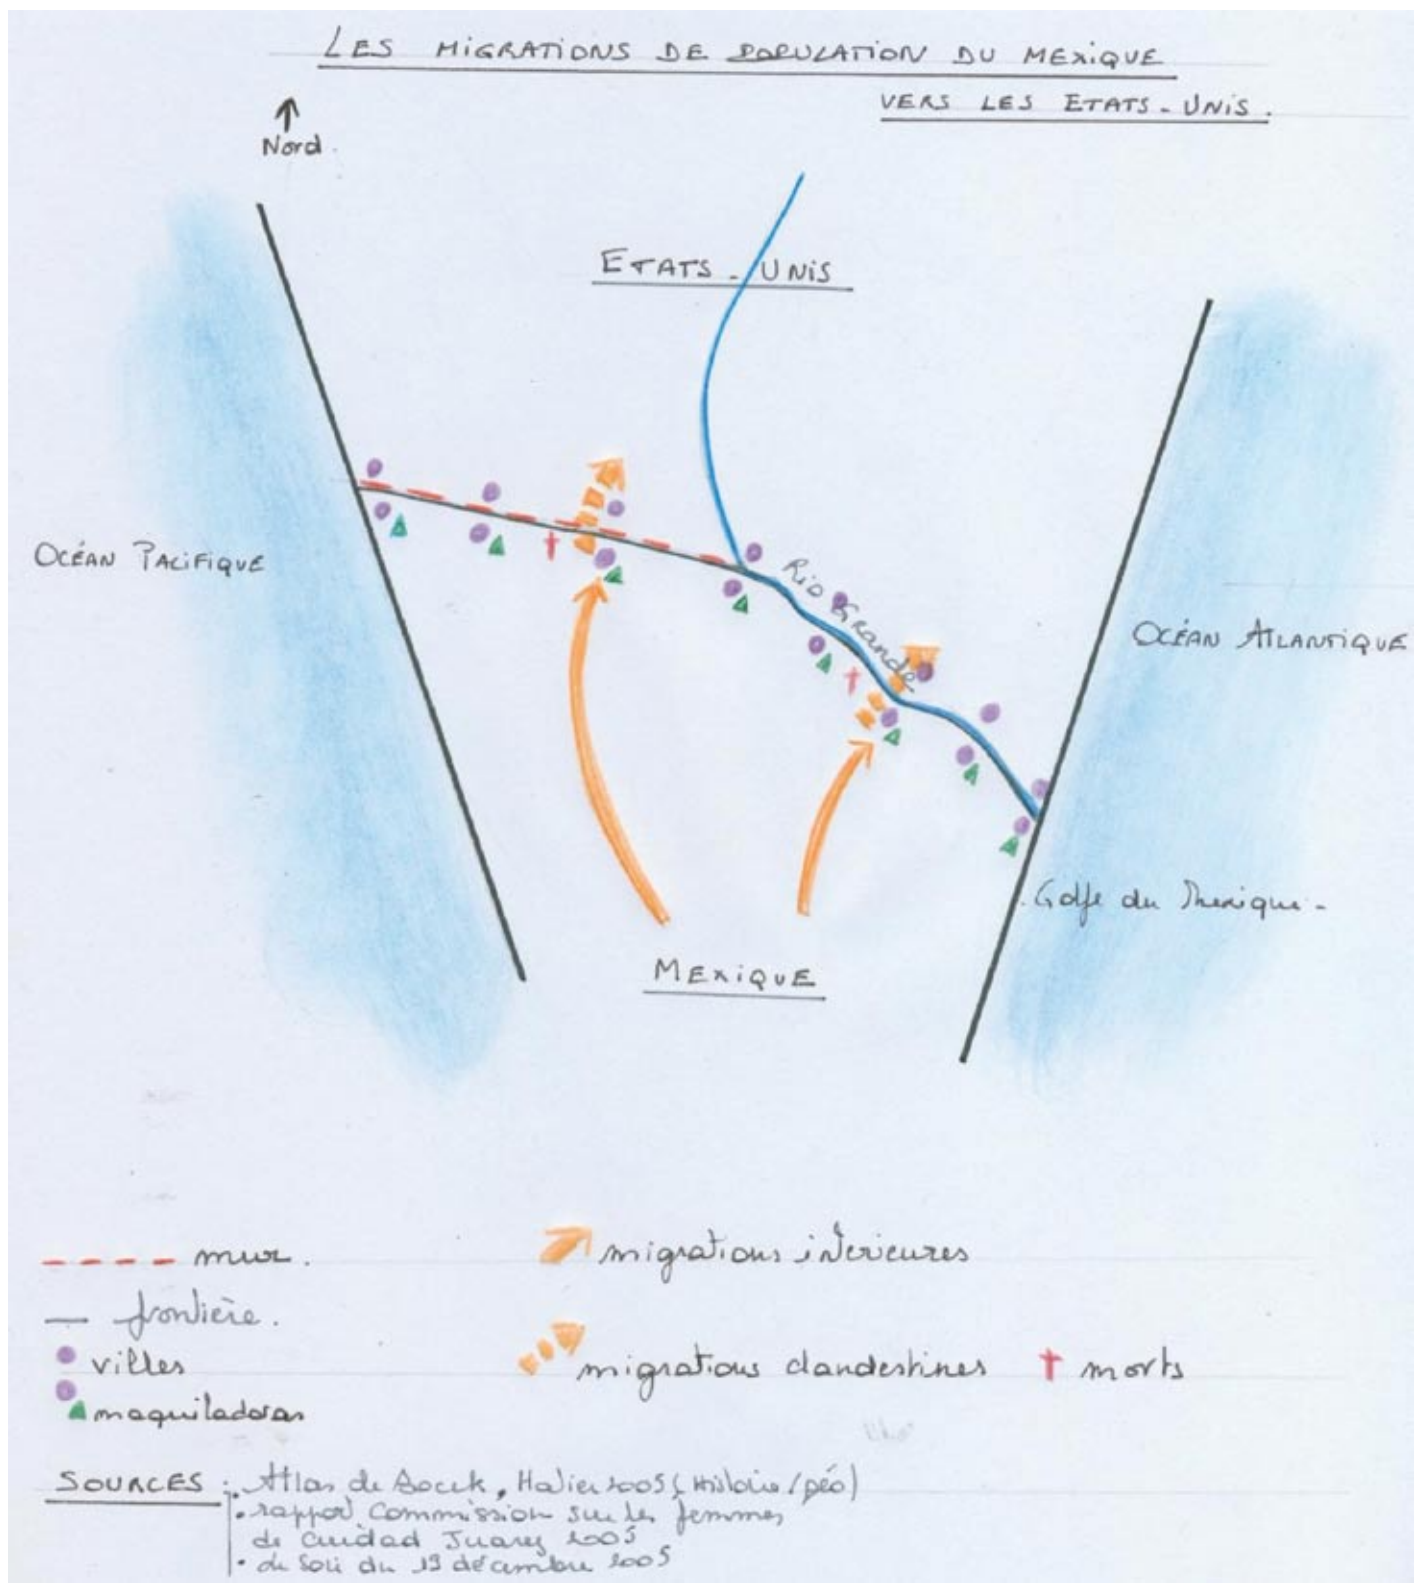 LES MIGRATIONS DE POPULATION DU MEXIQUE
VERS LES ETATS-UNIS.
Nord.
ETATS-UNIS
OCÉAN PACIFIQUE
Rio Grande
OCÉAN ATLANTIQUE
Golfe du Mexique
MEXIQUE
mur.
migrations intérieures
frontière.
villes
migrations clandestines
morts
maquiladoras
SOURCES : Atlas de , Hatier 2005 (Histoire/géo)
• rapport Commission sur les femmes
de Ciudad Juarez 2005
• Le Soir du 19 décembre 2005